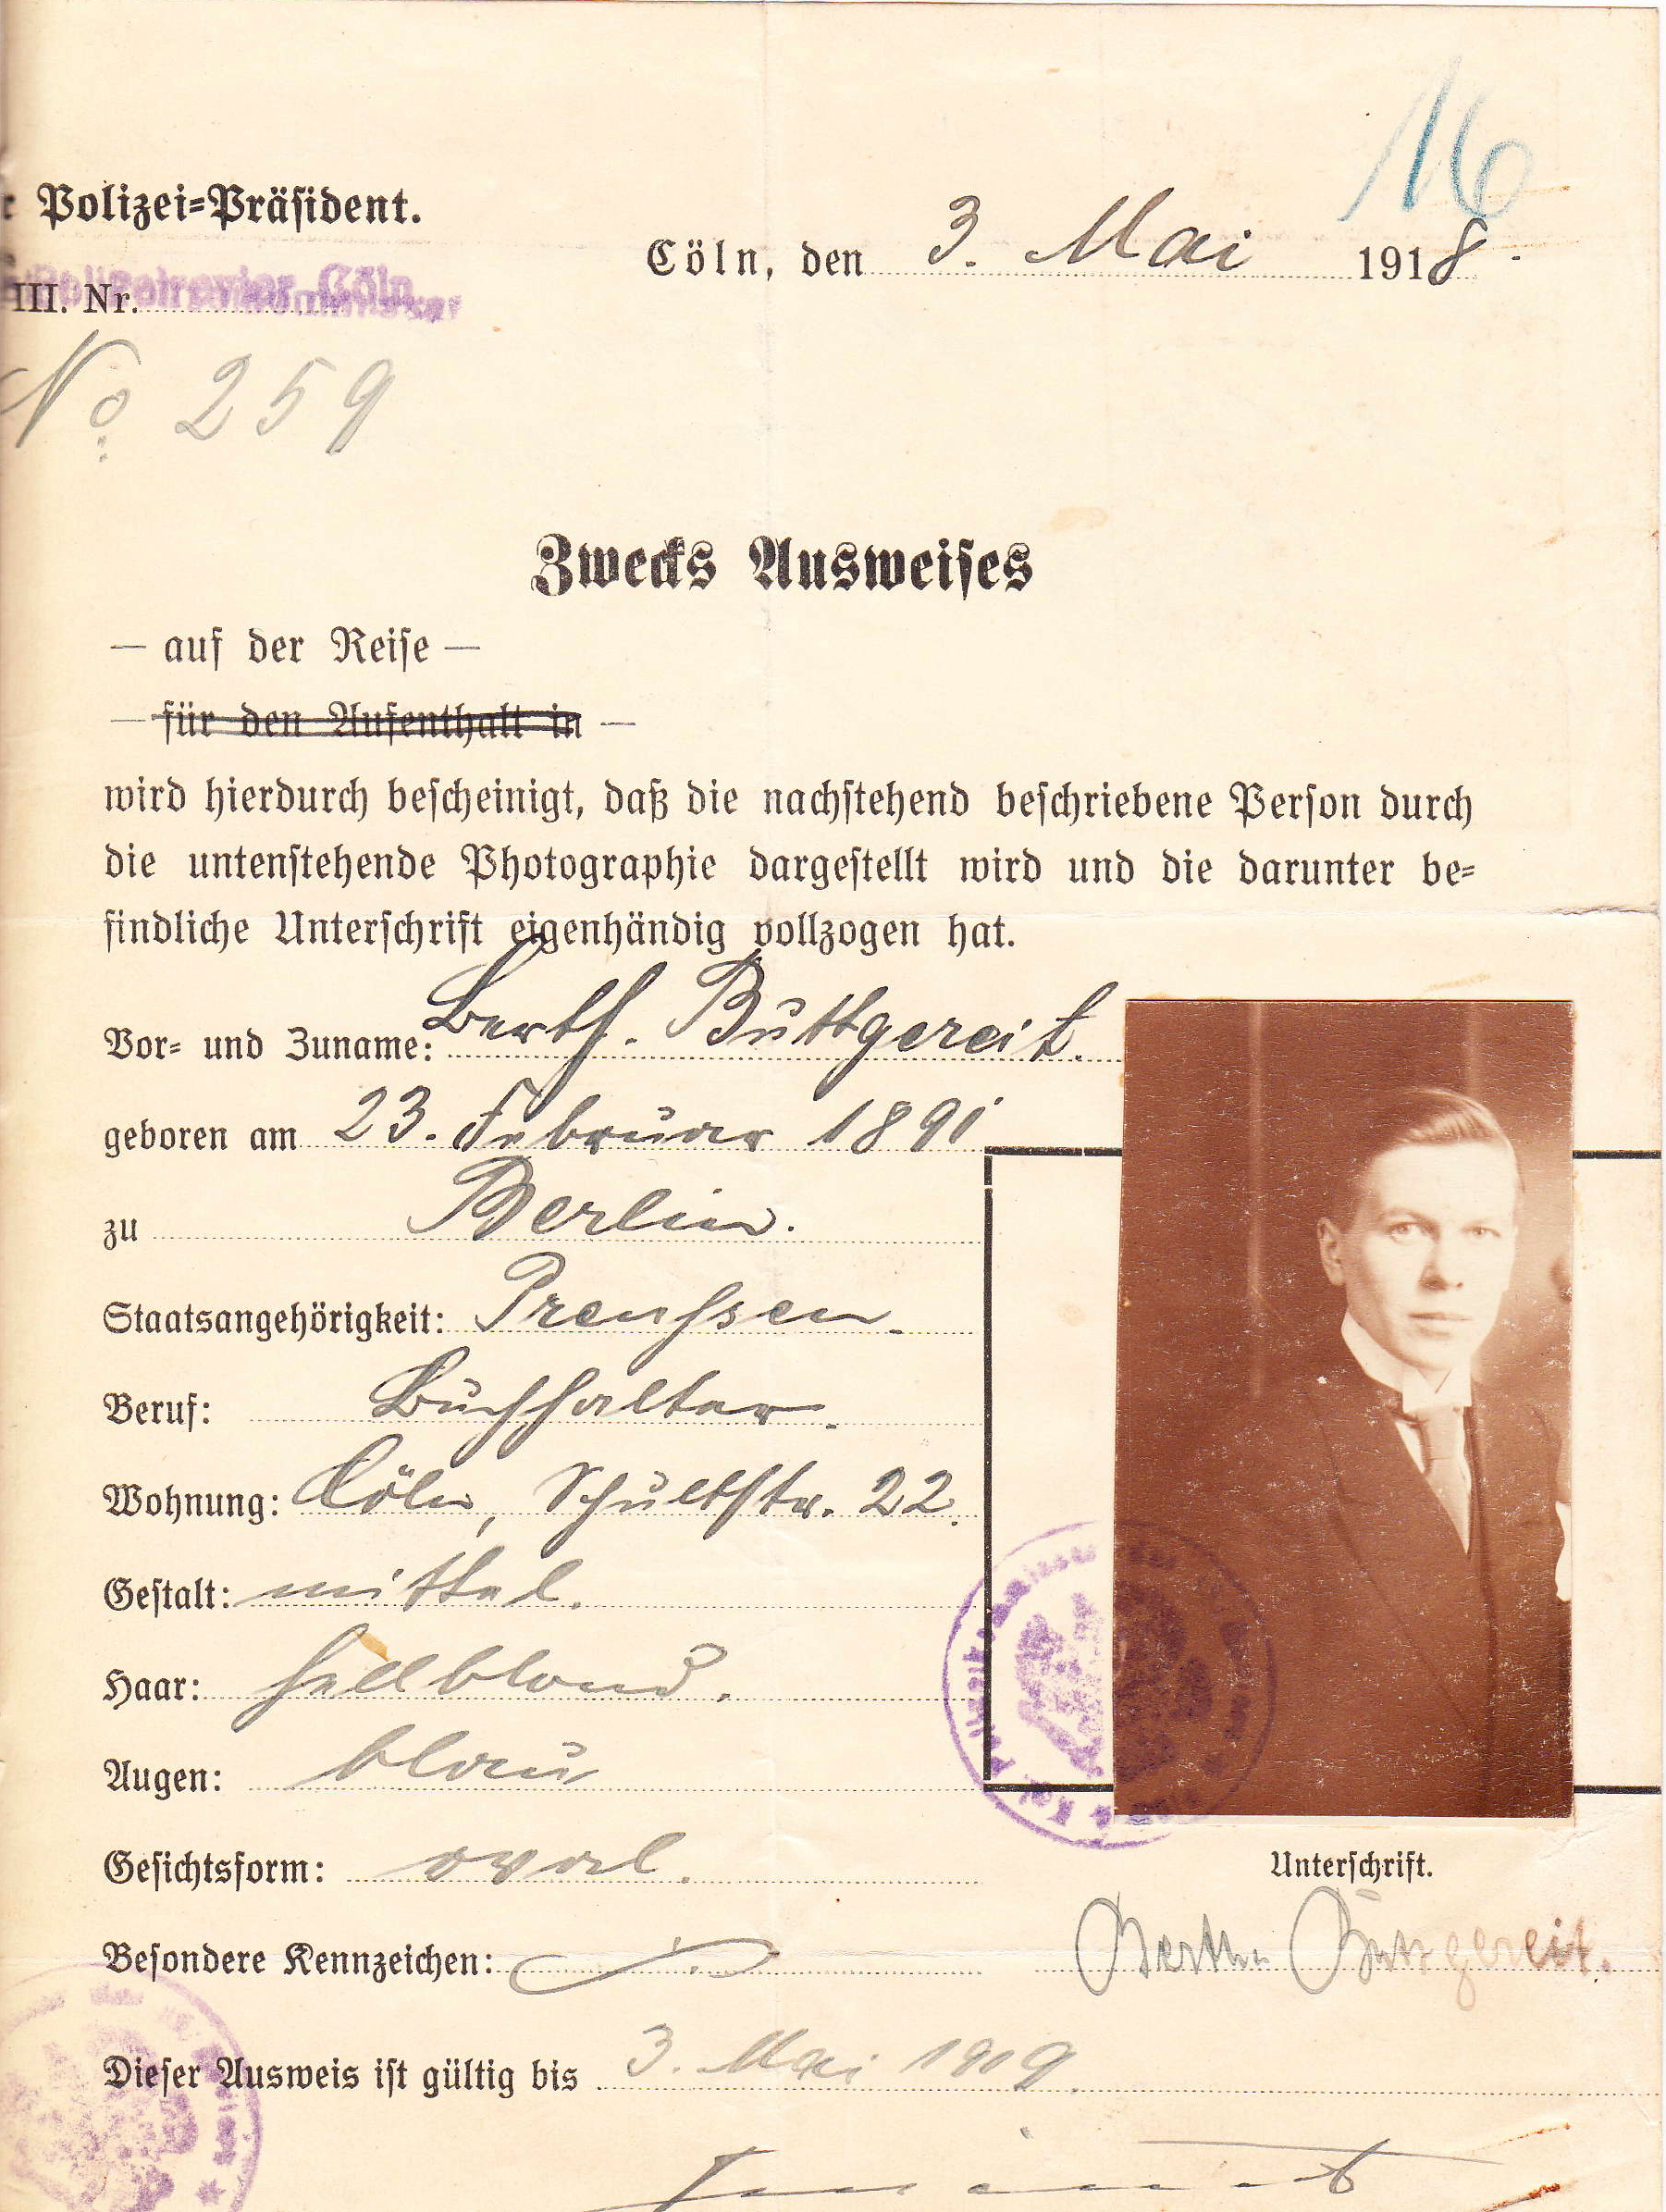 16
Polizei=Präsident.
Cöln, den 3. Mai 1918.
Polizeirevier Cöln
III. Nr.
No. 259
Zwecks Ausweises
— auf der Reise —
— für den Aufenthalt in —
wird hierdurch bescheinigt, daß die nachstehend beschriebene Person durch
die untenstehende Photographie dargestellt wird und die darunter be=
findliche Unterschrift eigenhändig vollzogen hat.
Vor= und Zuname: Berth. Buttgereit.
geboren am 23. Februar 1891
zu Berlin.
Staatsangehörigkeit: Preußen.
Beruf: Buchhalter.
Wohnung: Cöln, Schultstr. 22.
Gestalt: mittel.
Haar: hellblond.
Augen: blau
Gesichtsform: oval.
Unterschrift.
Besondere Kennzeichen:
Buttgereit.
Dieser Ausweis ist gültig bis 3. Mai 1919.